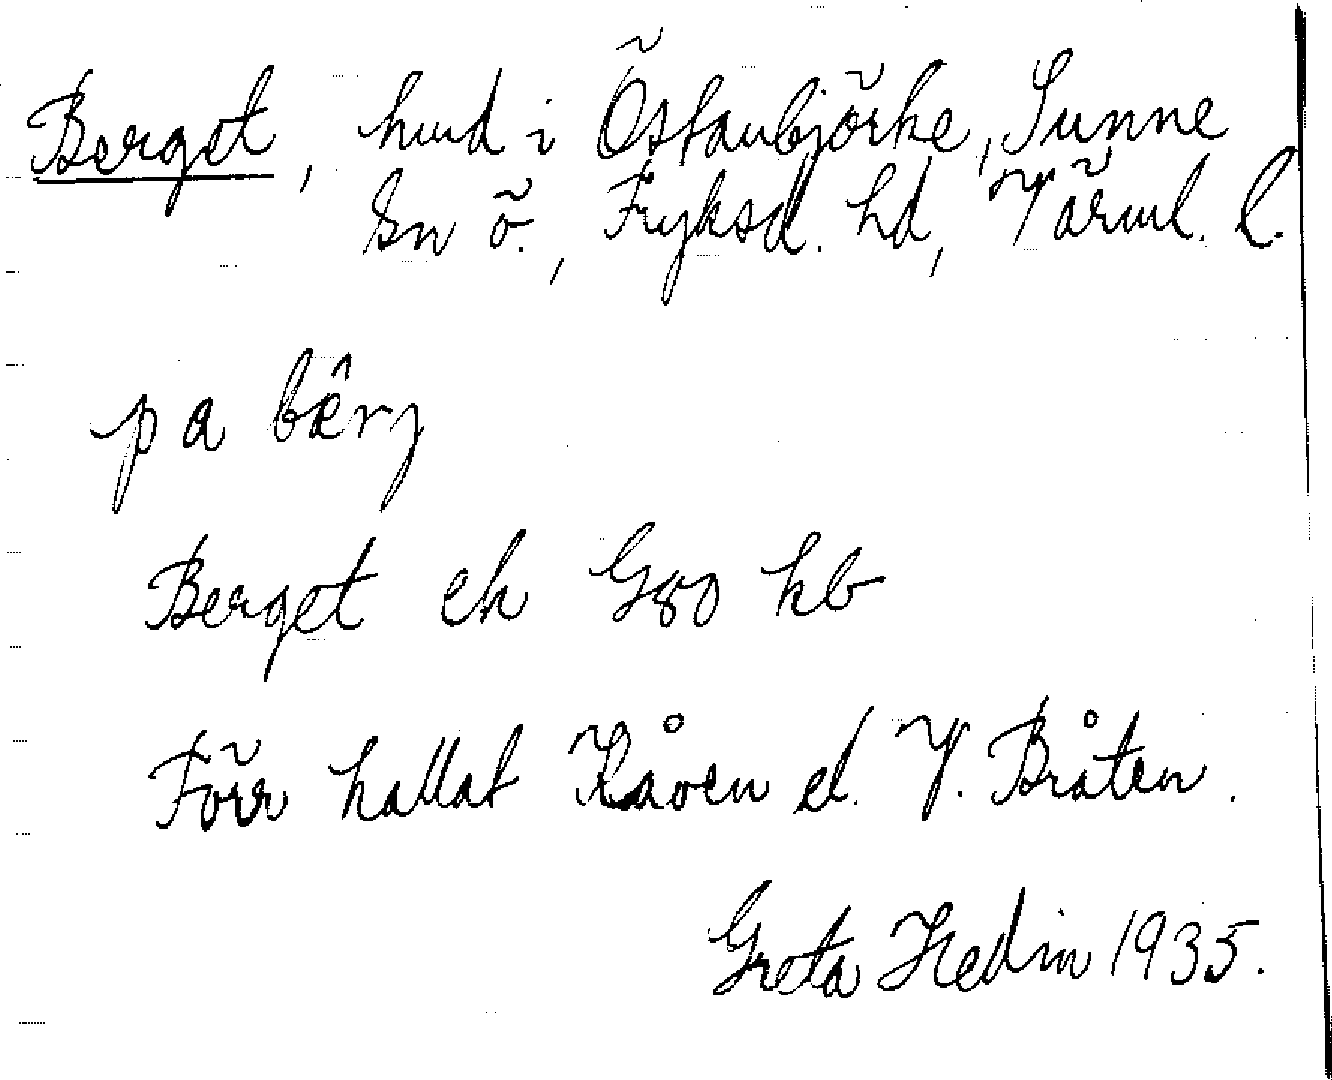 Berget, hmd i Östanbjörke, Sunne
sn ö., Fryksd. hd, Värml. l.
pa bærj
Berget ek G80 kb
Förr kallat Kåven el. V. Bråten.
Greta Hedin 1935.